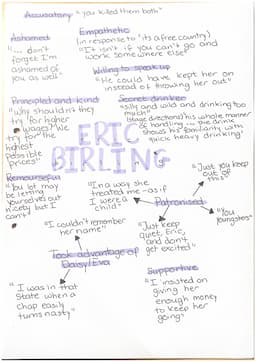 Accusatory "you killed them both"
Ashamed
"... don't
forget I'm
ashamed of
you as well"
Empathetic
(in response to "its a free country)
"It isn't if you can't go and
work somewhere else"
Willing to speak up
"He could have kept her on
instead of throwing her out"
Principled and kind
"Why shouldn't they
try for higher
wages? We
try for the
highest
possible
prices"
Secret drinker
"silly and wild and drinking too
much"
(stage directions) his whole manner
of handling ... the drink
shows his familiarity with
quick heavy drinking"
ERIC
BIRLING
Remorseful
"You lot may
be letting
yourselves out
nicely but I
can't"
"In a way she
treated me - as if
I were a
child"
"Just you keep
out of
this"
Patronised
"You
youngsters"
"Just keep
quiet, Eric,
and don't
get excited"
"I couldn't remember
her name"
Took advantage of
Daisy/Eva
"I was in that
state when a
chap easily
turns nasty"
Supportive
"I insisted on
giving her
enough money
to keep her
going"